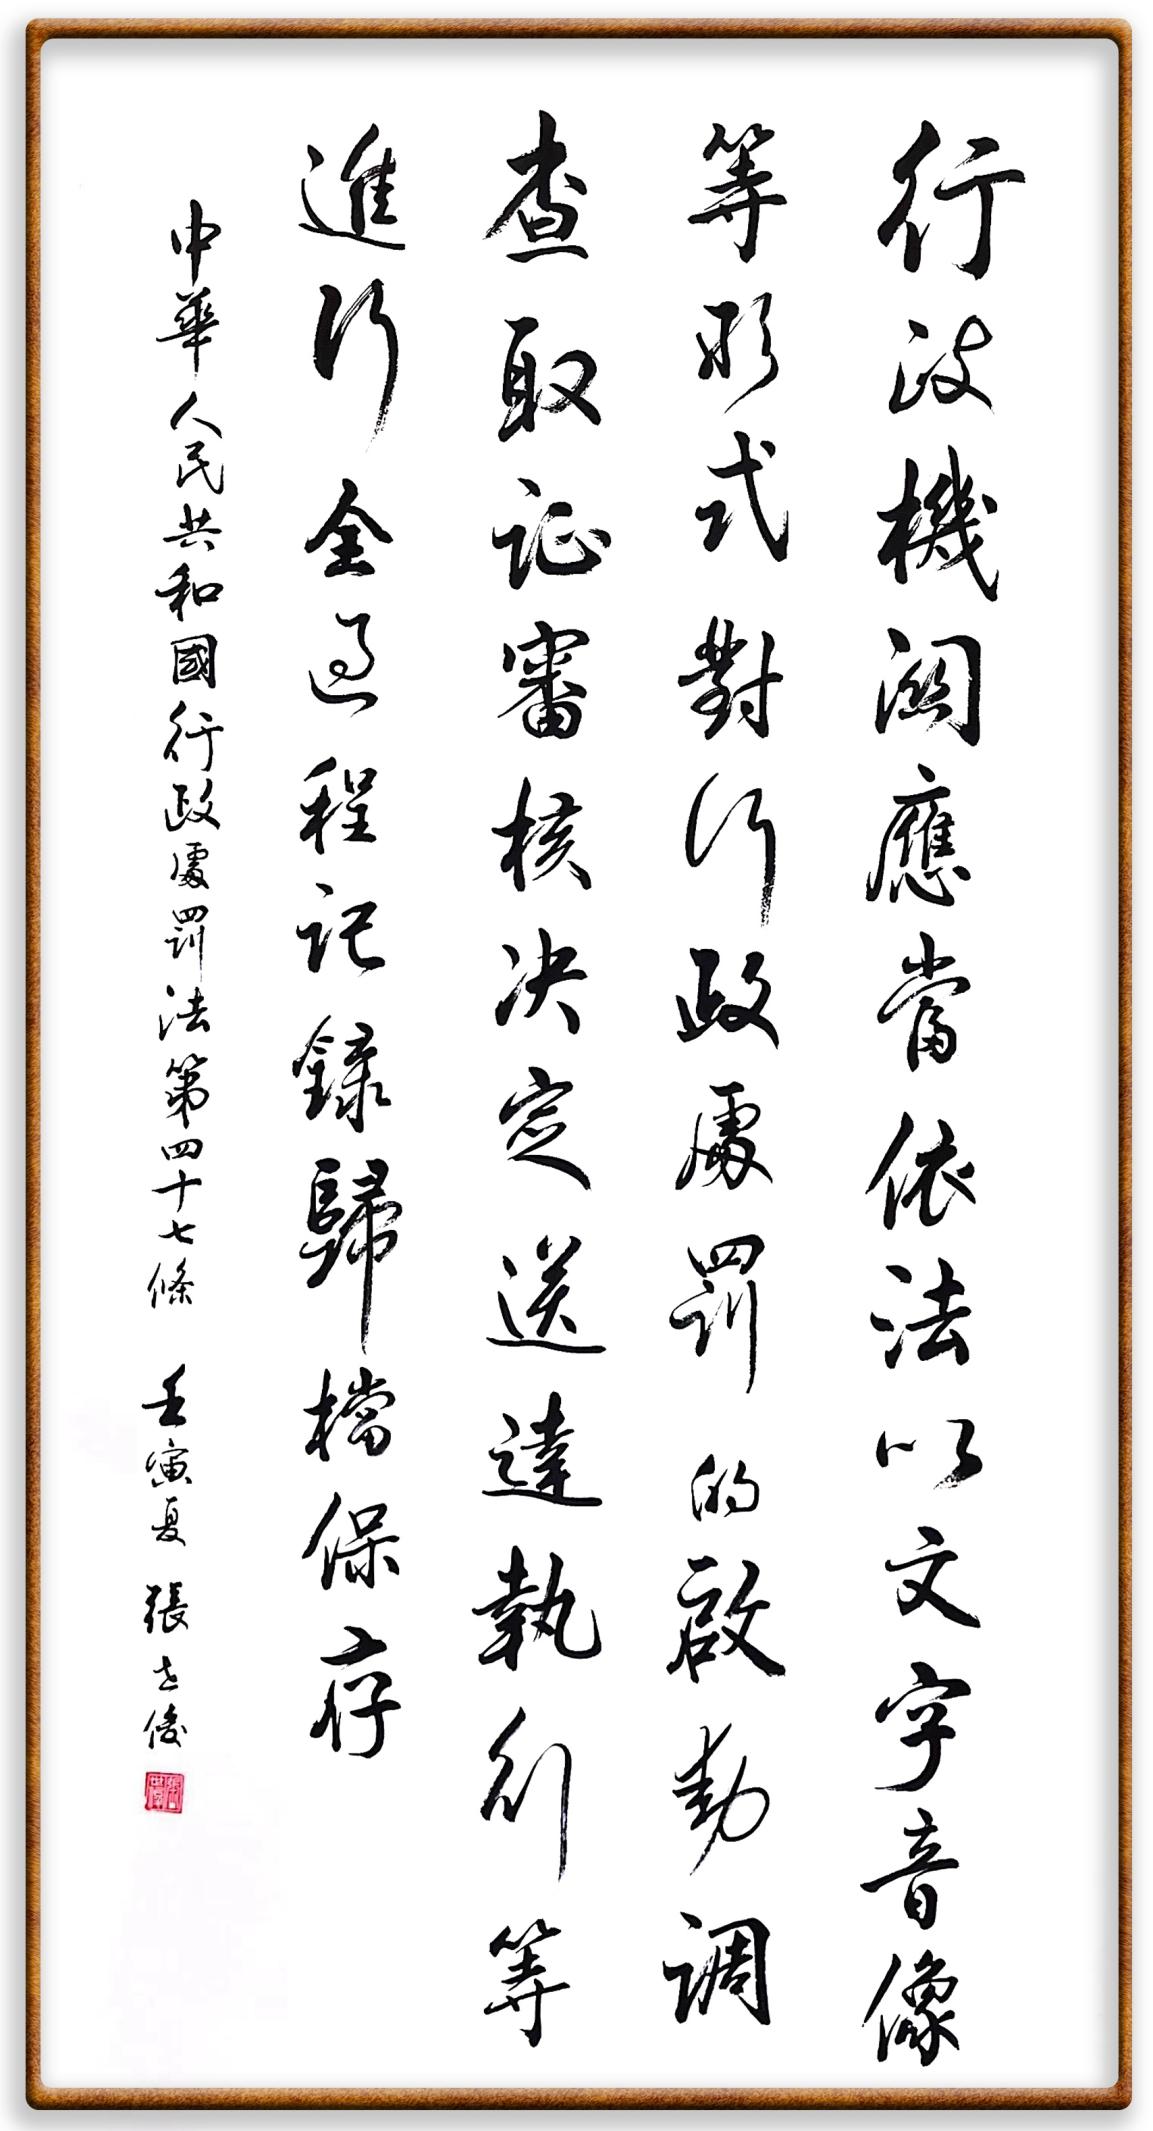 行政機関應當依法以文字音像
等形式對行政處罰的啟動調
查取证審核决定送達執行等
進行全過程记録歸檔保存
中華人民共和國行政處罰法第四十七條 壬寅夏 張世俊